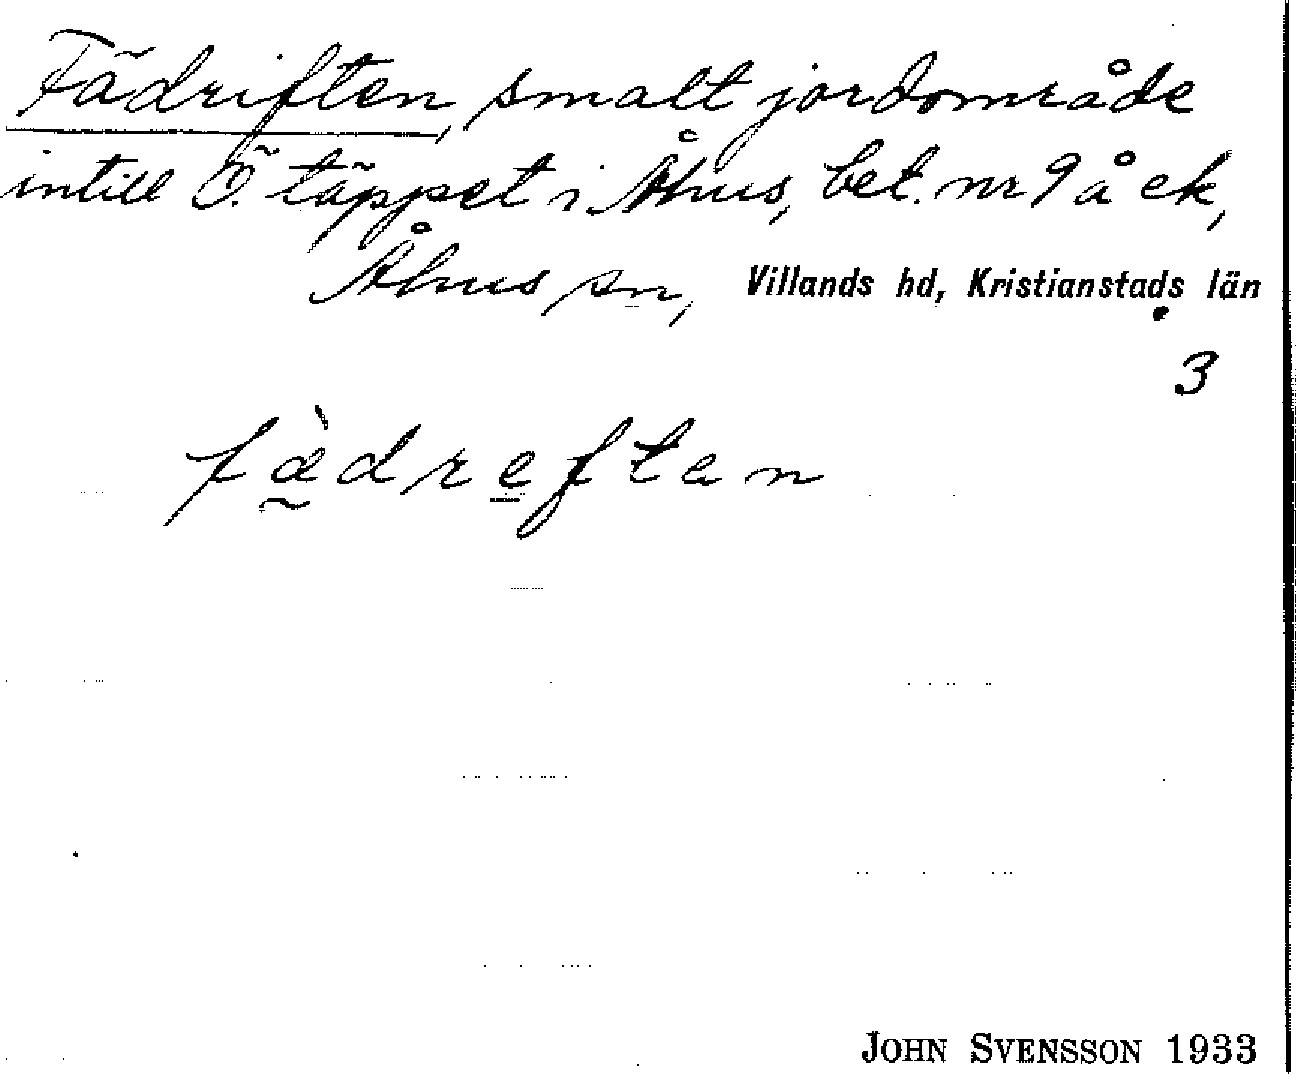 Fädriften, smalt jordområde
intill Ö. täppet i Åhus, bet. nr 9 å ek,
Åhus sn, Villands hd, Kristianstads län
3
fàdreftan
JOHN SVENSSON 1933